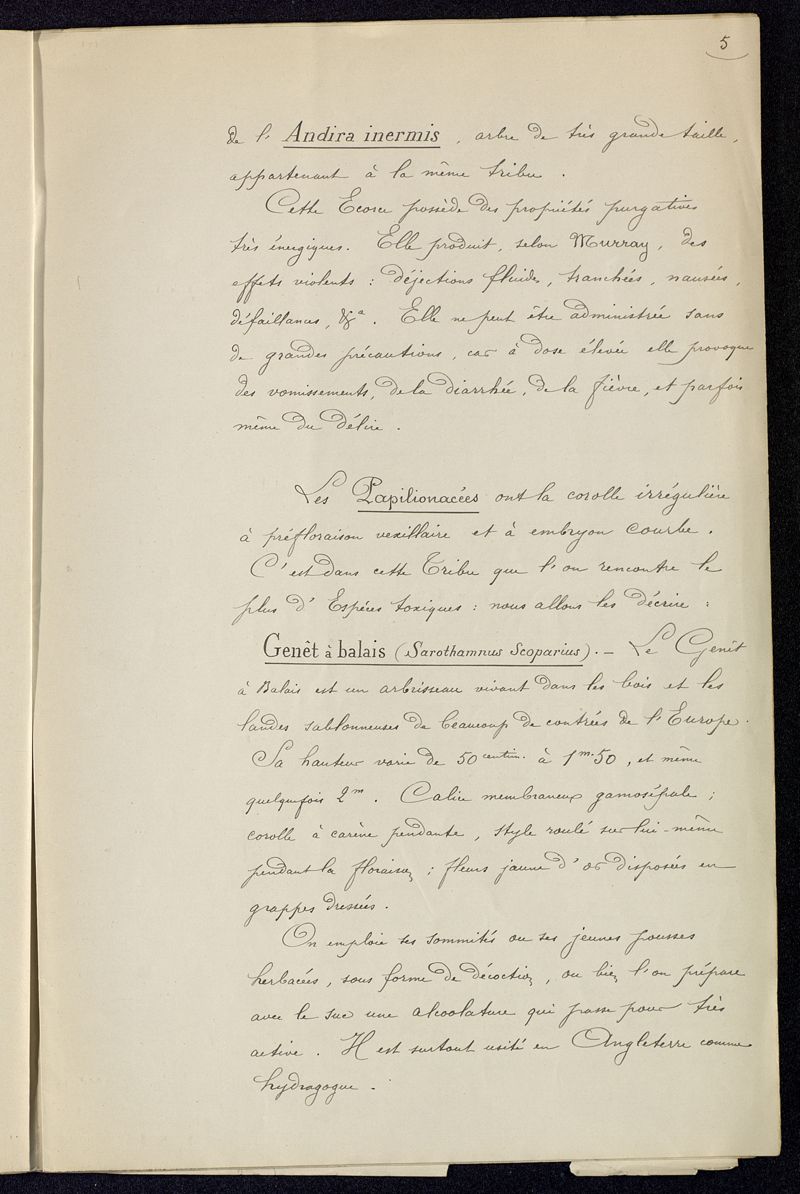 5
de l' Andira inermis, arbre de très grande taille,
appartenant à la même tribu.
Cette Ecorce possède des propriétés purgatives
très énergiques. Elle produit, selon Murray, des
effets violents : déjections fluides, tranchées, nausées,
défaillances, &a. Elle ne peut être administrée sans
de grandes précautions, car à dose élevée elle provoque
des vomissements, de la diarrhée, de la fièvre, et parfois
même du délire.
Les Papilionacées ont la corolle irrégulière
à préfloraison vexillaire et à embryon courbe.
C'est dans cette Tribu que l'on rencontre le
plus d'Espèces toxiques : nous allons les décrire :
Genêt à balais (Sarothamnus Scoparius). — Le Genêt
à Balais est un arbrisseau vivant dans les bois et les
landes sablonneuses de beaucoup de contrées de l'Europe.
Sa hauteur varie de 50 centim. à 1m.50, et même
quelquefois 2m. Calice membraneux gamosépale ;
corolle à carène pendante, style roulé sur lui-même
pendant la floraison ; fleurs jaune d'or disposées en
grappes dressées.
On emploie ses sommités ou ses jeunes pousses
herbacées, sous forme de décoction, ou bien l'on prépare
avec le suc une alcoolature qui passe pour très
active. Il est surtout usité en Angleterre comme
hydragogue.